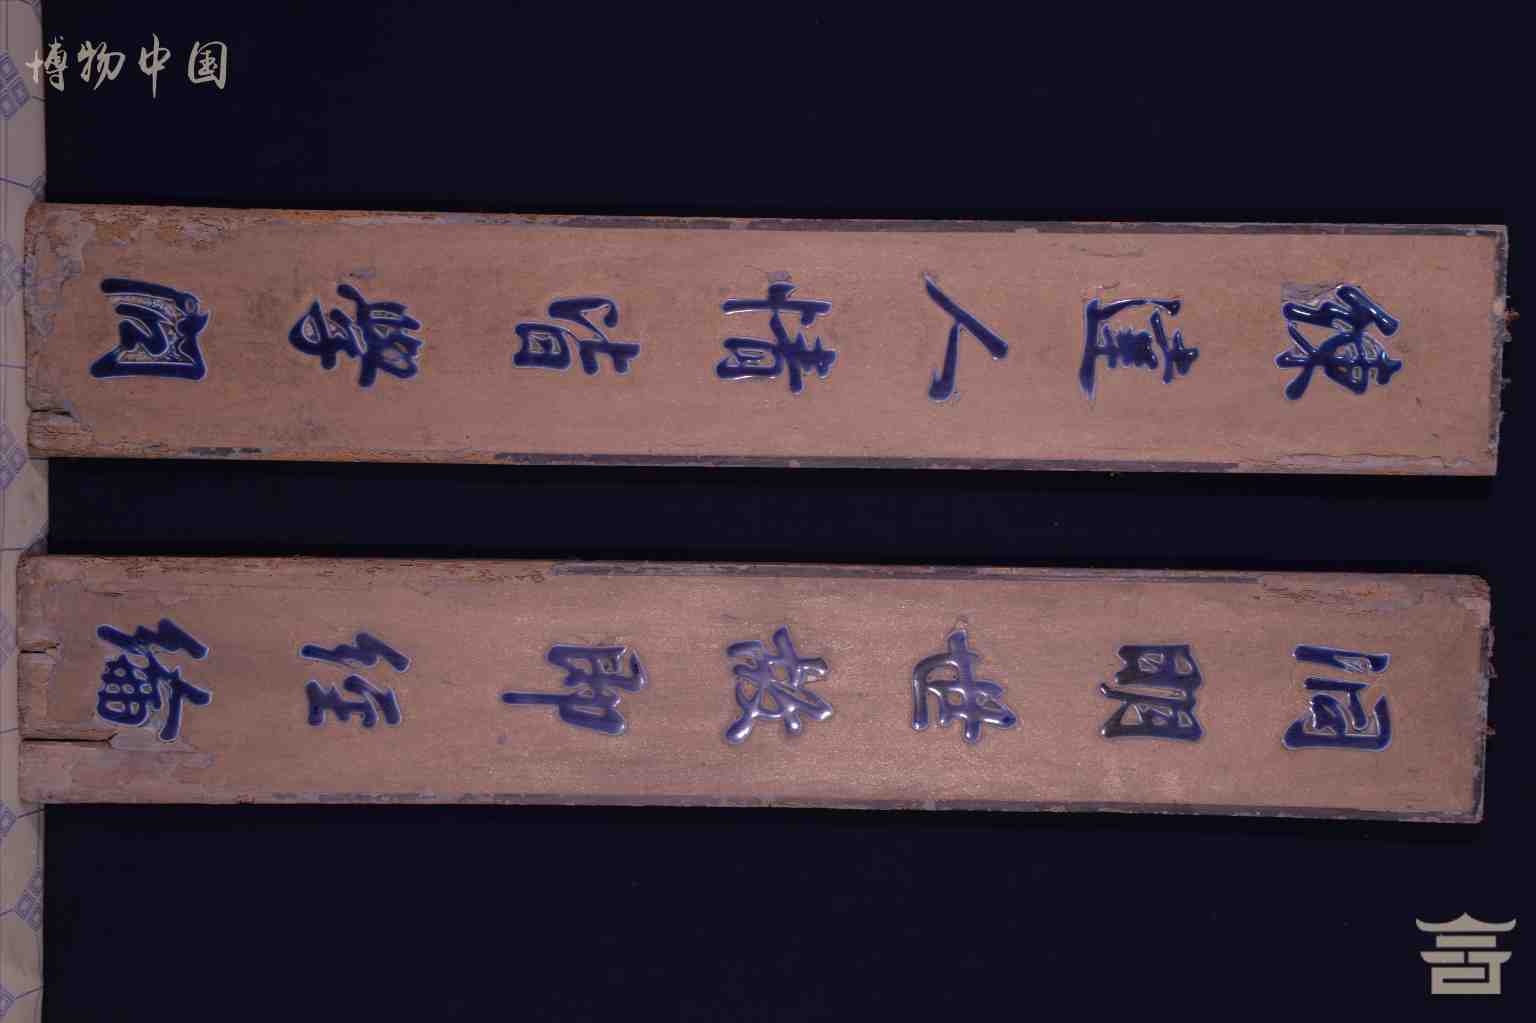 博物中国
鍊達人情皆學問
洞明世故即經綸